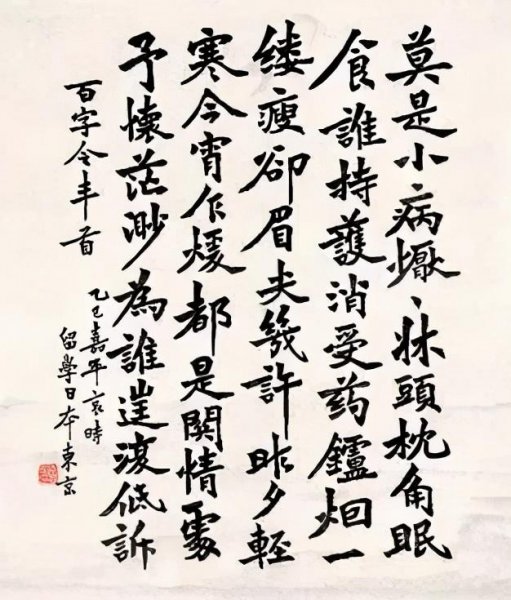 莫是小病懨〻牀頭枕角眠
食誰持護消受药鑪烟一
缕瘦卻眉尖幾許昨夕輕
寒今宵乍煖都是関情處
予懷茫渺為誰低訴
百字令半首
乙巳嘉平亥時
留學日本東京